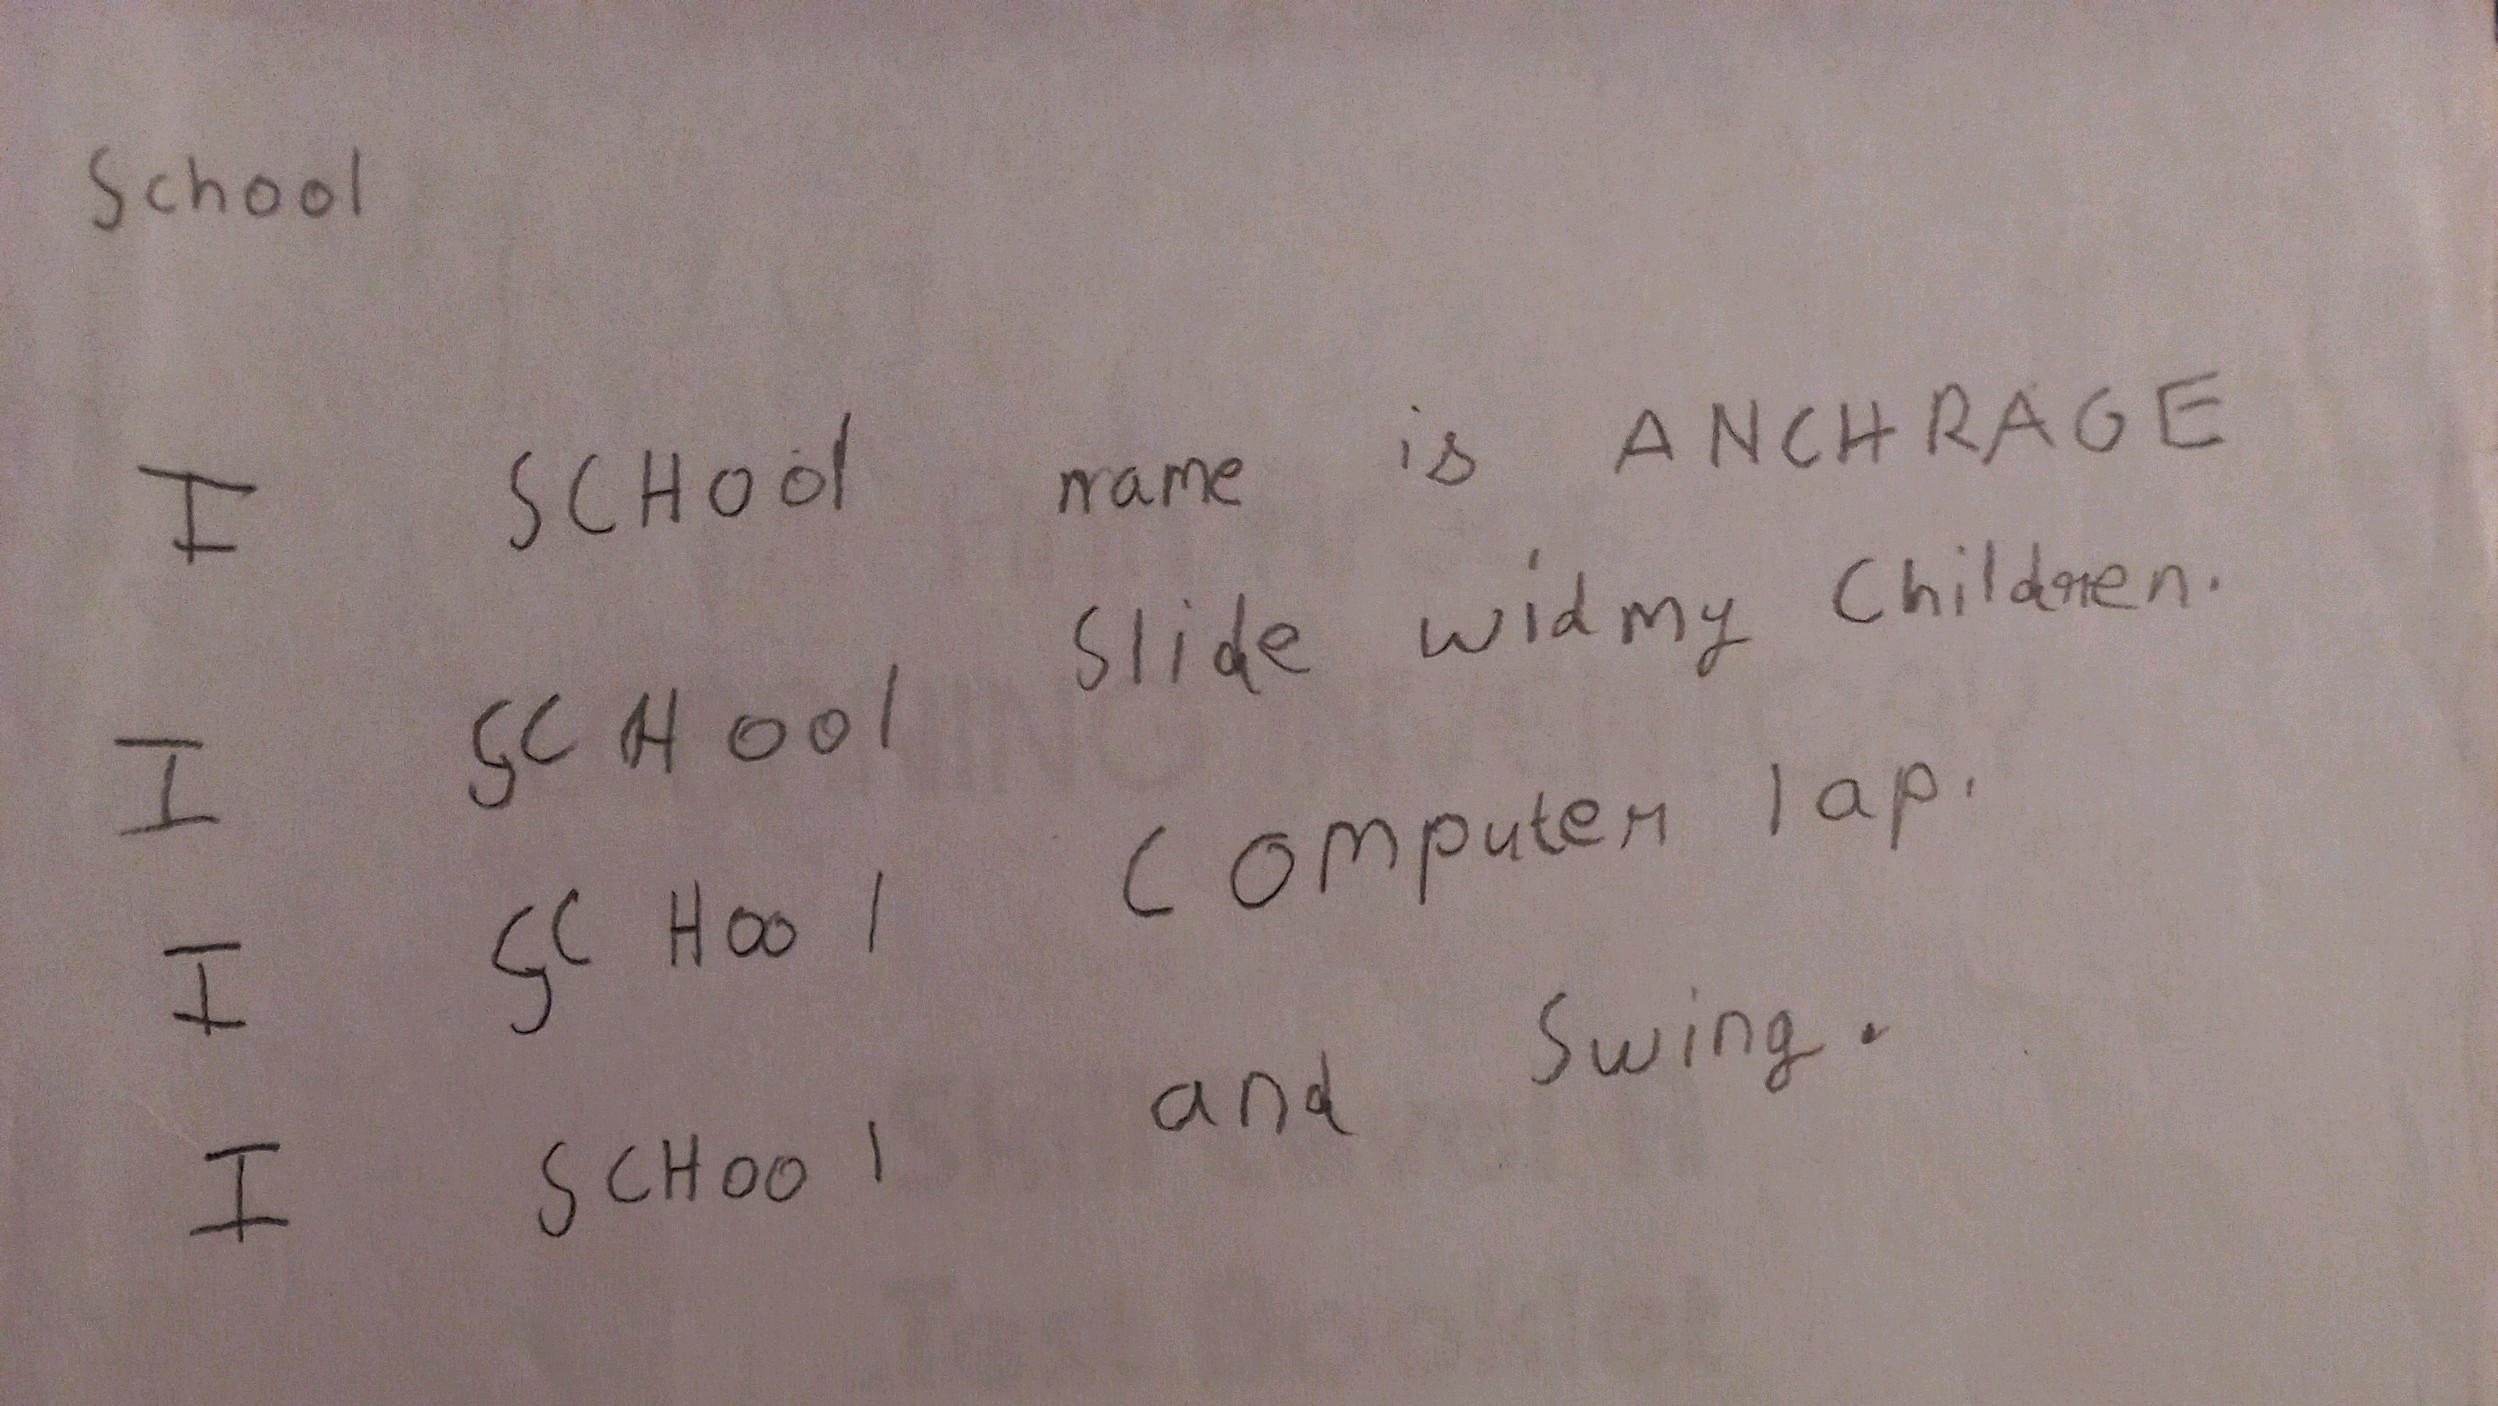 School
I SCHOol name is ANCHRAGE
I SCHOol Slide widmy Children.
I SCHool Computer lap.
I SCHool and Swing.